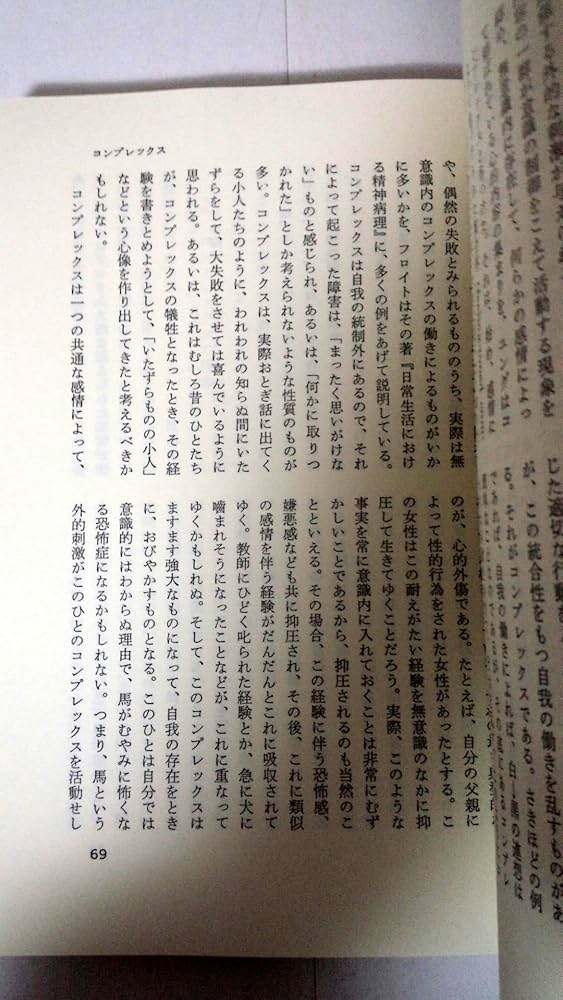 する現象を
じた適切な行動を
が、この統合性をもつ自我の働きを乱すものがあ
る。それがコンプレックスである。さきほどの例
コンプレックス
や、偶然の失敗とみられるもののうち、実際は無
意識内のコンプレックスの働きによるものがいか
に多いかを、フロイトはその著『日常生活におけ
る精神病理』に、多くの例をあげて説明している。
コンプレックスは自我の統制外にあるので、それ
によって起こった障害は、「まったく思いがけな
い」ものと感じられ、あるいは、「何かに取りつ
かれた」としか考えられないような性質のものが
多い。コンプレックスは、実際おとぎ話に出てく
る小人たちのように、われわれの知らぬ間にいた
ずらをして、大失敗をさせては喜んでいるように
思われる。あるいは、これはむしろ昔のひとたち
が、コンプレックスの犠牲となったとき、その経
験を書きとめようとして、「いたずらものの小人」
などという心像を作り出してきたと考えるべきか
もしれない。
コンプレックスは一つの共通な感情によって、
のが、心的外傷である。たとえば、自分の父親に
よって性的行為をされた女性があったとする。こ
の女性はこの耐えがたい経験を無意識のなかに抑
圧して生きてゆくことだろう。実際、このような
事実を常に意識内に入れておくことは非常にむず
かしいことであるから、抑圧されるのも当然のこ
とといえる。その場合、この経験に伴う恐怖感、
嫌悪感なども共に抑圧され、その後、これに類似
の感情を伴う経験がだんだんとこれに吸収されて
ゆく。教師にひどく叱られた経験とか、急に犬に
噛まれそうになったことなどが、これに重なって
ゆくかもしれぬ。そして、このコンプレックスは
ますます強大なものになって、自我の存在をとき
に、おびやかすものとなる。このひとは自分では
意識的にはわからぬ理由で、馬がむやみに怖くな
る恐怖症になるかもしれない。つまり、馬という
外的刺激がこのひとのコンプレックスを活動せし
69